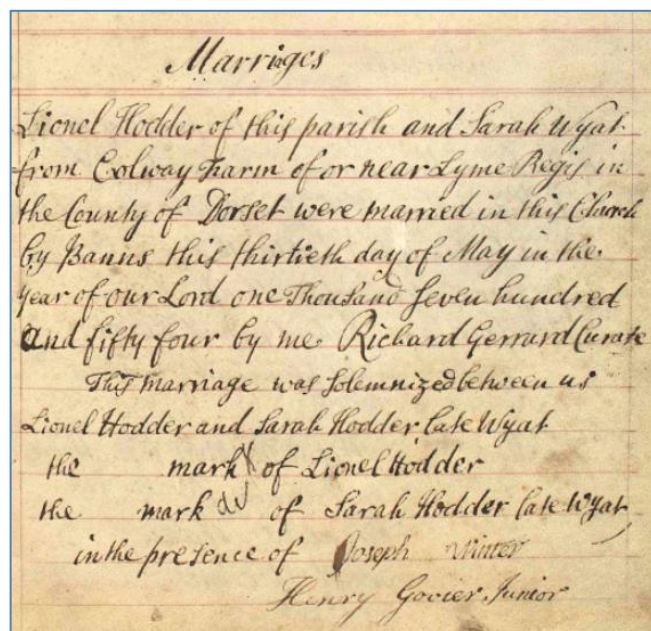 Marriages
Lionel Hodder of this parish and Sarah Wyat
from Colway Farm of or near Lyme Regis in
the County of Dorset were married in this Church
by Banns this thirtieth day of May in the
Year of our Lord one Thousand Seven hundred
and fifty four by me Richard Gerrard Curate
This marriage was Solemnized between us
Lionel Hodder and Sarah Hodder late Wyat
the mark X of Lionel Hodder
the mark of Sarah Hodder late Wyat
in the presence of Joseph Winter
Henry Govier Junior